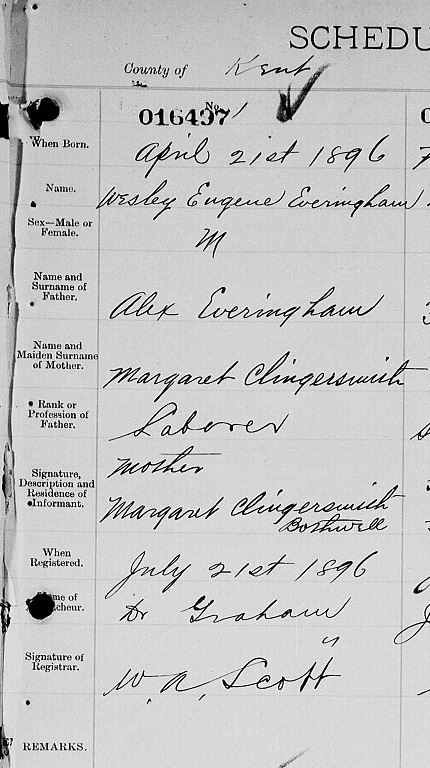 SCHEDU
County of Kent
No.
016497
When Born.
April 21st 1896
Name.
Wesley Eugene Everingham
Sex—Male or
Female.
M
Name and
Surname of
Father.
Alex Everingham
Name and
Maiden Surname
of Mother.
Margaret Clingersmith
Rank or
Profession of
Father.
Laborer
Signature,
Description and
Residence of
Informant.
Mother
Margaret Clingersmith
Bothwell
When
Registered.
July 21st 1896
Dr Graham
"
Signature of
Registrar.
W. A. Scott
REMARKS.